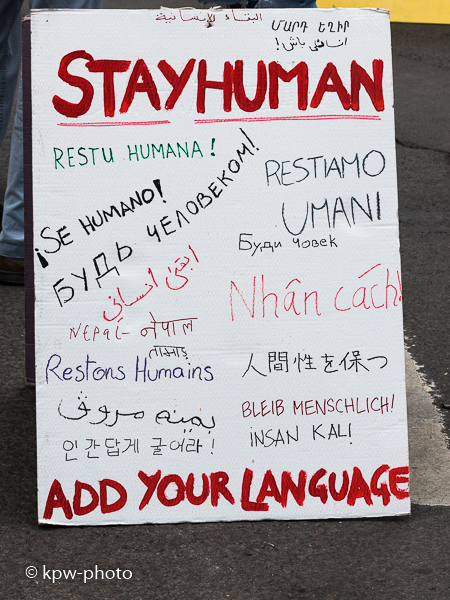 البقاء للإنسانية
ՄԱՐԴ ԵՂԻՐ
انسان باش!
STAYHUMAN
RESTU HUMANA!
RESTIAMO
UMANI
¡SE HUMANO!
БУДЬ ЧЕЛОВЕКОМ!
Буди човек
ابقي انساني
Nhân cách!
NEPAL- नेपाल
Restons Humains
人間性を保つ
BLEIB MENSCHLICH!
인간답게 굴어라!
İNSAN KAL!
ADD YOUR LANGUAGE
© kpw-photo